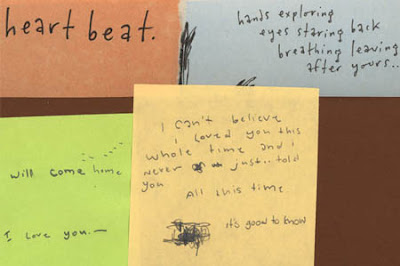 heart beat.
hands exploring
eyes staring back
breathing leaving
after yours..
will come home
I love you.—
I can't believe
I loved you this
whole time and i
never just.. told
you
All this time
it's good to know